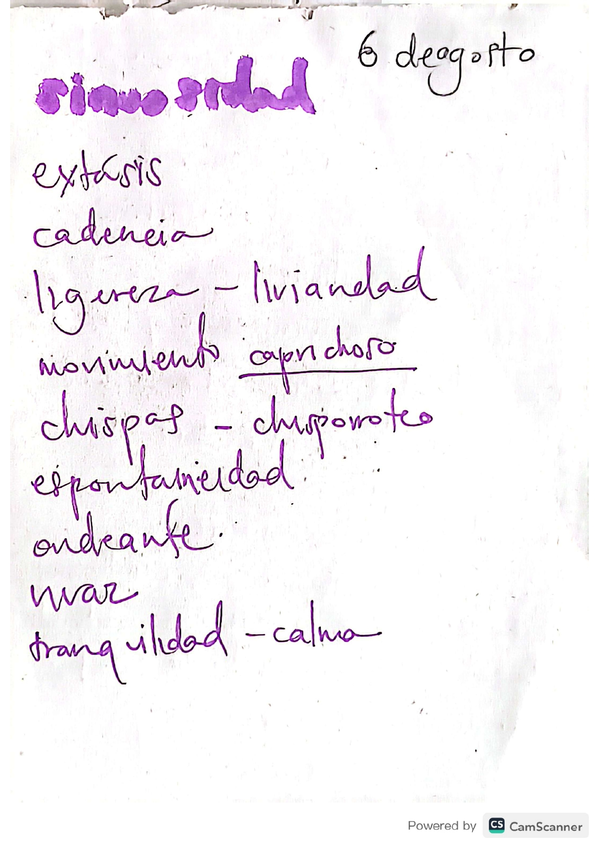 6 de agosto
sinuosidad
extásis
cadencia
ligereza - liviandad
movimiento caprichoso
chispas - chisporroteo
espontaneidad
ondeante.
tranquilidad - calma
Powered by CS CamScanner